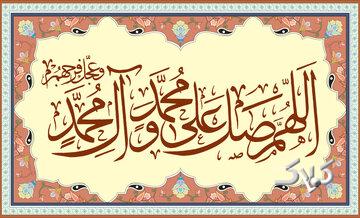 اَللّٰهُمَّ صَلِّ عَلىٰ مُحَمَّدٍ وَ آلِ مُحَمَّدٍ
وَ عَجِّلْ فَرَجَهُمْ